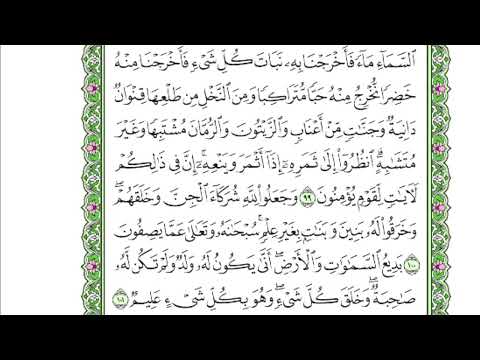 ٱلسَّمَآءِ مَآءً فَأَخْرَجْنَا بِهِۦ نَبَاتَ كُلِّ شَىْءٍ فَأَخْرَجْنَا مِنْهُ
خَضِرًا نُّخْرِجُ مِنْهُ حَبًّا مُّتَرَاكِبًا وَمِنَ ٱلنَّخْلِ مِن طَلْعِهَا قِنْوَانٌ
دَانِيَةٌ وَجَنَّٰتٍ مِّنْ أَعْنَابٍ وَٱلزَّيْتُونَ وَٱلرُّمَّانَ مُشْتَبِهًا وَغَيْرَ
مُتَشَٰبِهٍ ۗ ٱنظُرُوٓا۟ إِلَىٰ ثَمَرِهِۦٓ إِذَآ أَثْمَرَ وَيَنْعِهِۦٓ ۚ إِنَّ فِى ذَٰلِكُمْ
لَءَايَٰتٍ لِّقَوْمٍ يُؤْمِنُونَ ٩٩ وَجَعَلُوا۟ لِلَّهِ شُرَكَآءَ ٱلْجِنَّ وَخَلَقَهُمْ ۖ
وَخَرَقُوا۟ لَهُۥ بَنِينَ وَبَنَٰتٍۭ بِغَيْرِ عِلْمٍ ۚ سُبْحَٰنَهُۥ وَتَعَٰلَىٰ عَمَّا يَصِفُونَ
١٠٠ بَدِيعُ ٱلسَّمَٰوَٰتِ وَٱلْأَرْضِ ۖ أَنَّىٰ يَكُونُ لَهُۥ وَلَدٌ وَلَمْ تَكُن لَّهُۥ
صَٰحِبَةٌ ۖ وَخَلَقَ كُلَّ شَىْءٍ ۖ وَهُوَ بِكُلِّ شَىْءٍ عَلِيمٌ ١٠١